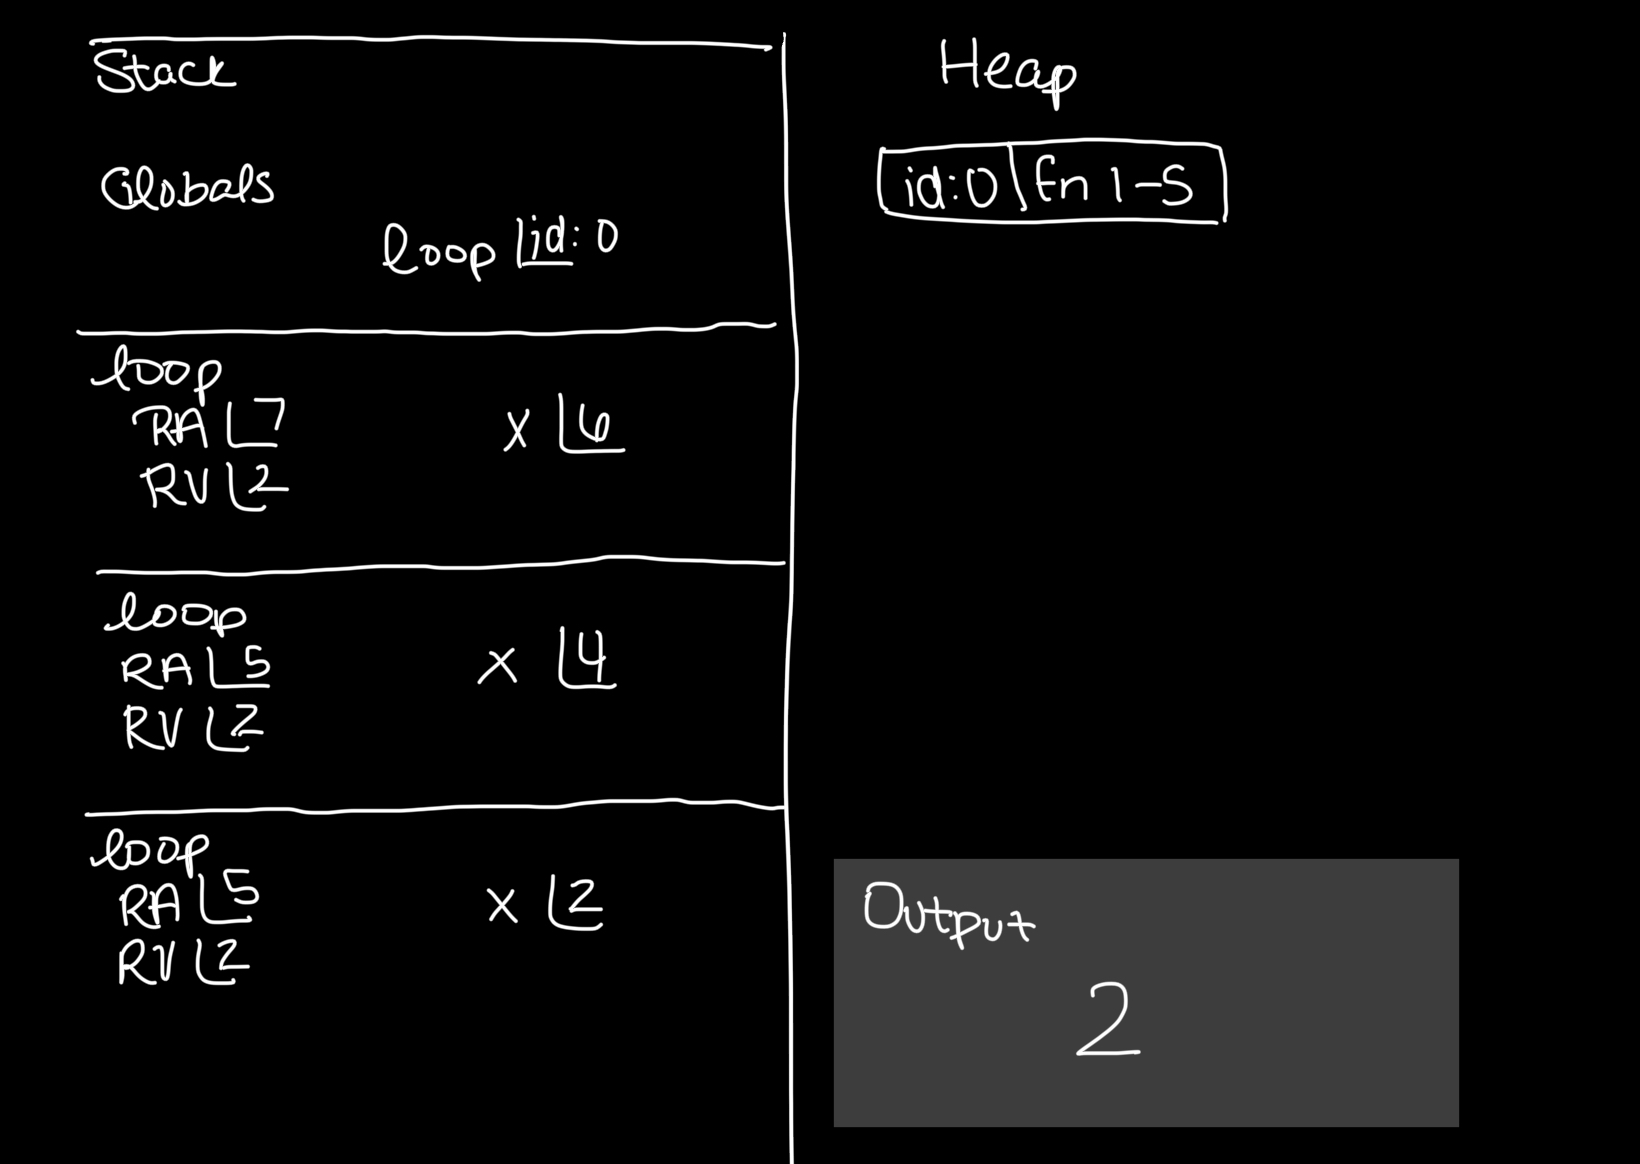 Stack
Globals
loop id: 0
loop
RA 7
x 6
RV 2
loop
RA 5
x 4
RV 2
loop
RA 5
x 2
RV 2
Heap
id:0 fn 1-5
Output
2